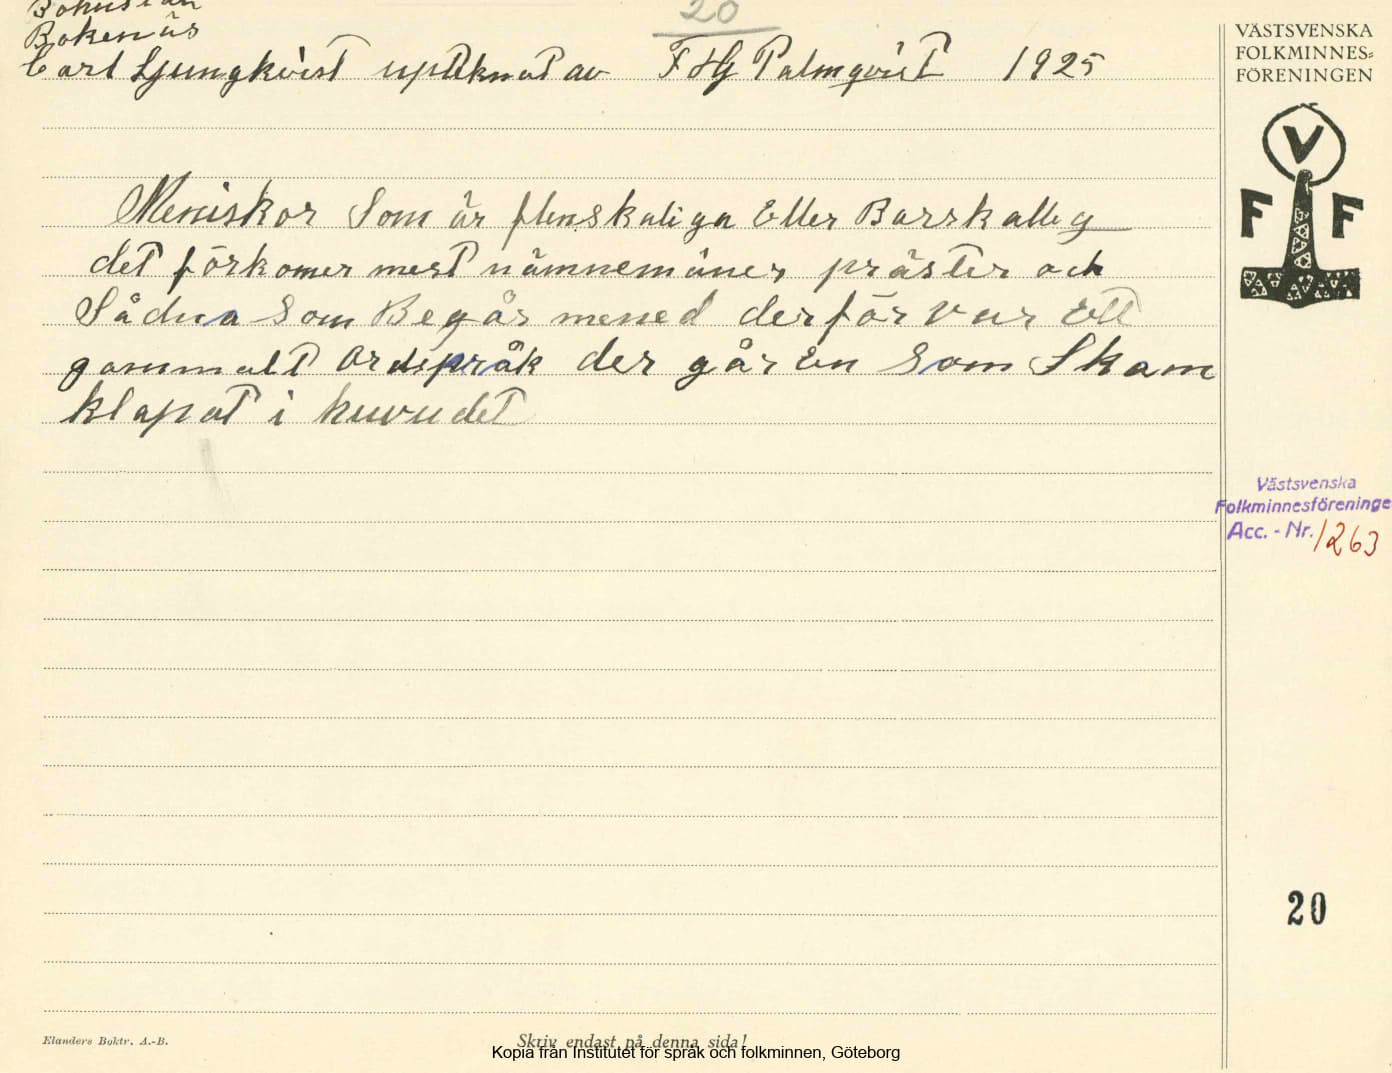 Bohuslän
20
Bokenäs
Carl Ljungkvist upteknat av F Hg Palmqvist 1925
Meniskor Som är flenskaliga Eller Barskalleg
det förkomer mest nämnemäner präster och
Sådna Som Begår mened derför var Ett
gammalt ordspråk der går En Som Skam
klapat i huvudet
VÄSTSVENSKA
FOLKMINNES=
FÖRENINGEN
V
F F
Västsvenska
Folkminnesföreninge
Acc. - Nr. 1263
20
Elanders Boktr. A.-B.
Skriv endast på denna sida!
Kopia från Institutet för språk och folkminnen, Göteborg